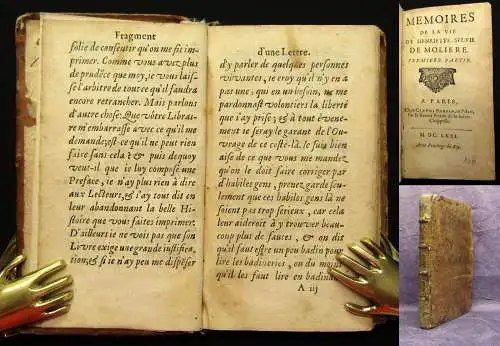 Fragment
folie de consentir qu'on me fit im-
primer. Comme vous avez plus
de prudéce que moy, je vous lais-
se l'arbitre de tout ce qu'il faudra
encore retrancher. Mais parlons
d'autre chose: Que vôtre Librai-
re m'embarrasse avec ce qu'il me
demande; est-ce qu'il ne peut rien
faire sans cela? & puis dequoy
veut-il que je luy compose une
Preface, je n'ay plus rien à dire
aux Lecteurs, & j'ay tout dit en
leur abandonnant la belle His-
toire que vous faites imprimer.
D'ailleurs je ne vois pas que son
Livre exige une grande justifica-
tion, & si je n'ay peu me dispéser
d'une Lettre.
d'y parler de quelques personnes
vivantes, je croy qu'il n'y en a
pas une; qui en bonne foy, ne me
pardonnast volontiers la liberté
que j'ay prise; & à tout évene-
ment je seray le garant de l'Ou-
vrage de ce costé-là. Je suis bien
aise de ce que vous me mandez
qu'on le doit faire corriger par
d'habiles gens, prenez garde seule-
ment que ces habiles gens là ne
soient pas trop serieux, car cela
leur aideroit à y trouver beau-
coup plus de fautes, & on dit
qu'il faut estre un peu badin pour
lire les badineries, ou du moins
qu'il les faut lire en badinant
A iij
MEMOIRES
DE LA VIE
DE HENRIETTE-SYLVIE
DE MOLIERE.
PREMIERE PARTIE.
A PARIS,
Chez CLAUDE BARBIN, au Palais,
sur le Second Perron de la Sainte
Chappelle.
M. DC. LXXI.
Avec Privilege du Roy.